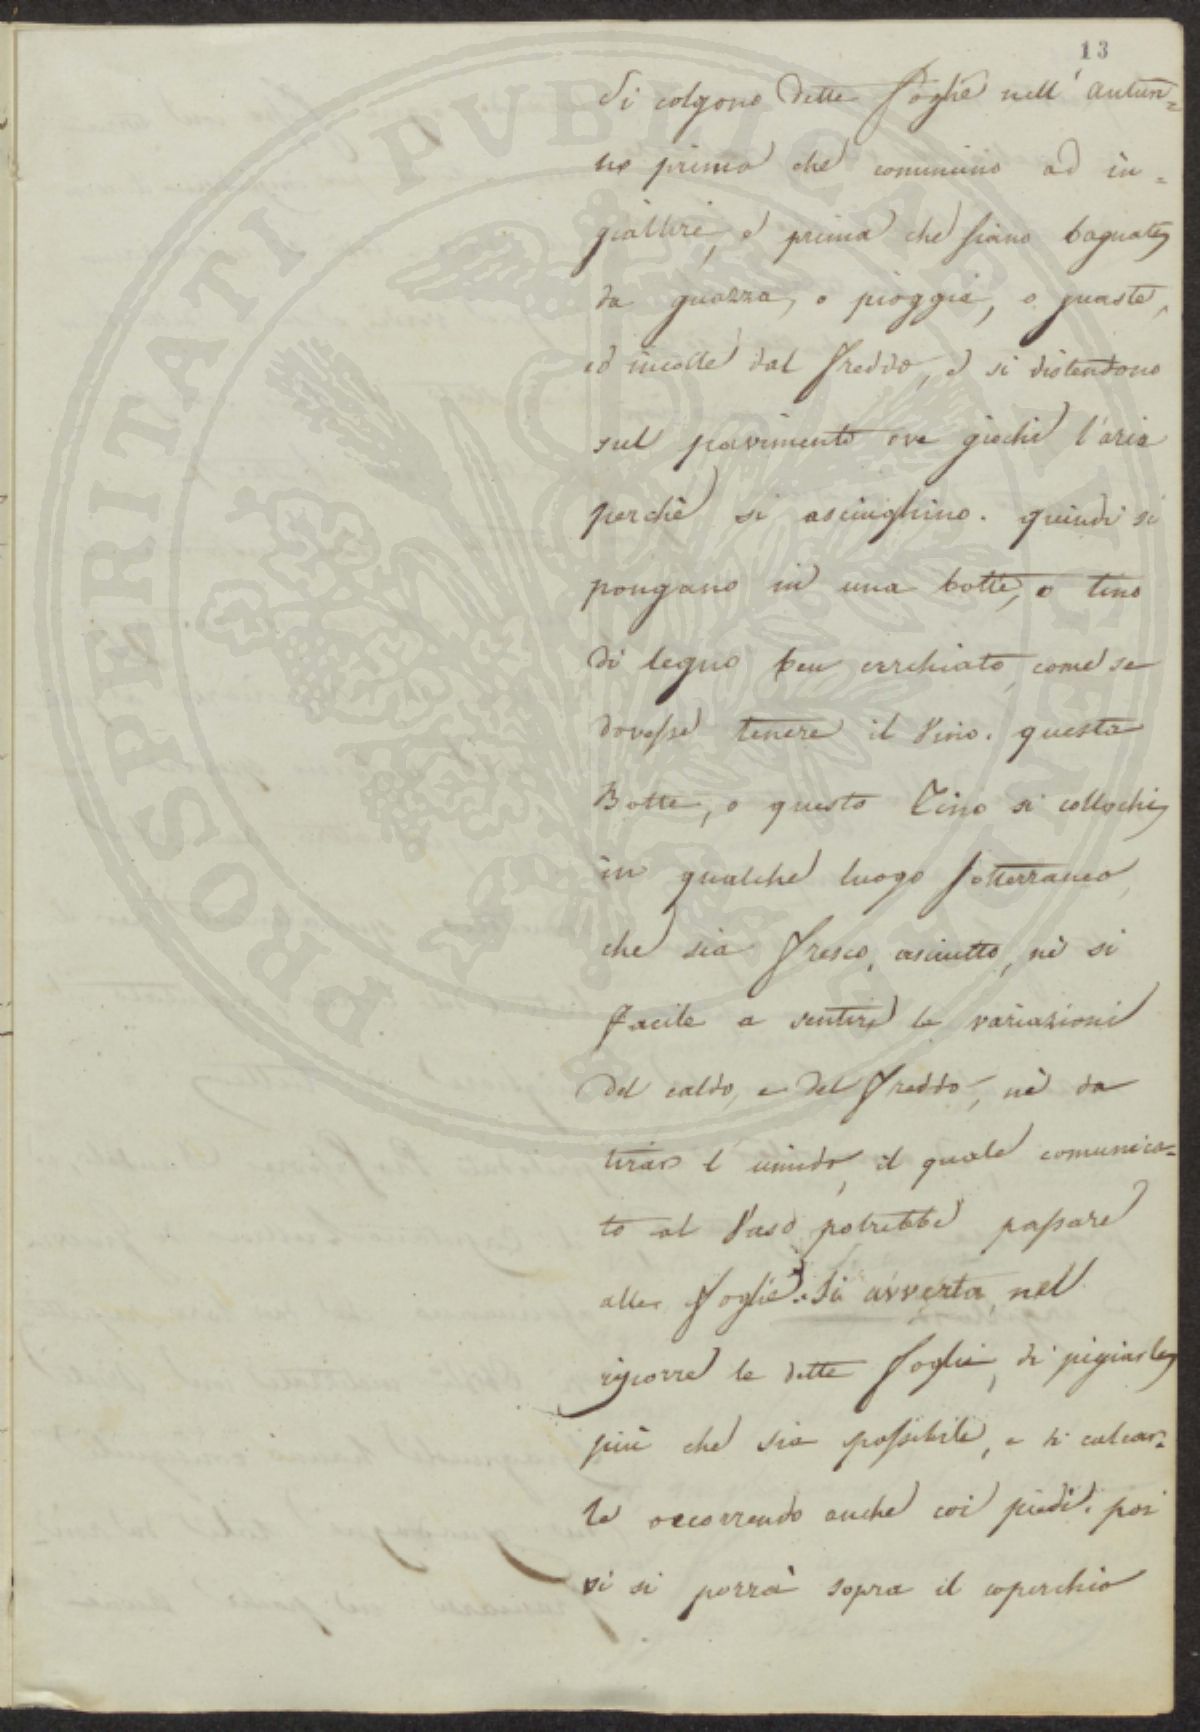 13
Si colgono dette foglie nell'autun=
no prima che comincino ad in=
giallire, e prima che siano bagnate
da guazza, o pioggia, o guaste,
ed incotte dal freddo, e si distendono
sul pavimento ove giochi l'aria
perchè si asciughino. quindi si
pongano in una botte, o tino
di legno ben cerchiato, come se
dovesse tenere il Vino. questa
Botte, o questo Tino si collochi
in qualche luogo sotterraneo,
che sia fresco, asciutto, nè si
facile a sentire le variazioni
del caldo, e del freddo, nè da
tirar l'umido, il quale comunica=
to al Vaso potrebbe passare
alle foglie. Si avverta, nel
riporre le dette foglie, di pigiarle
più che sia possibile, e di calcar=
le occorrendo anche coi piedi. poi
vi si porrà sopra il coperchio
PROSPERITATI PVBLICAE AVGENDAE